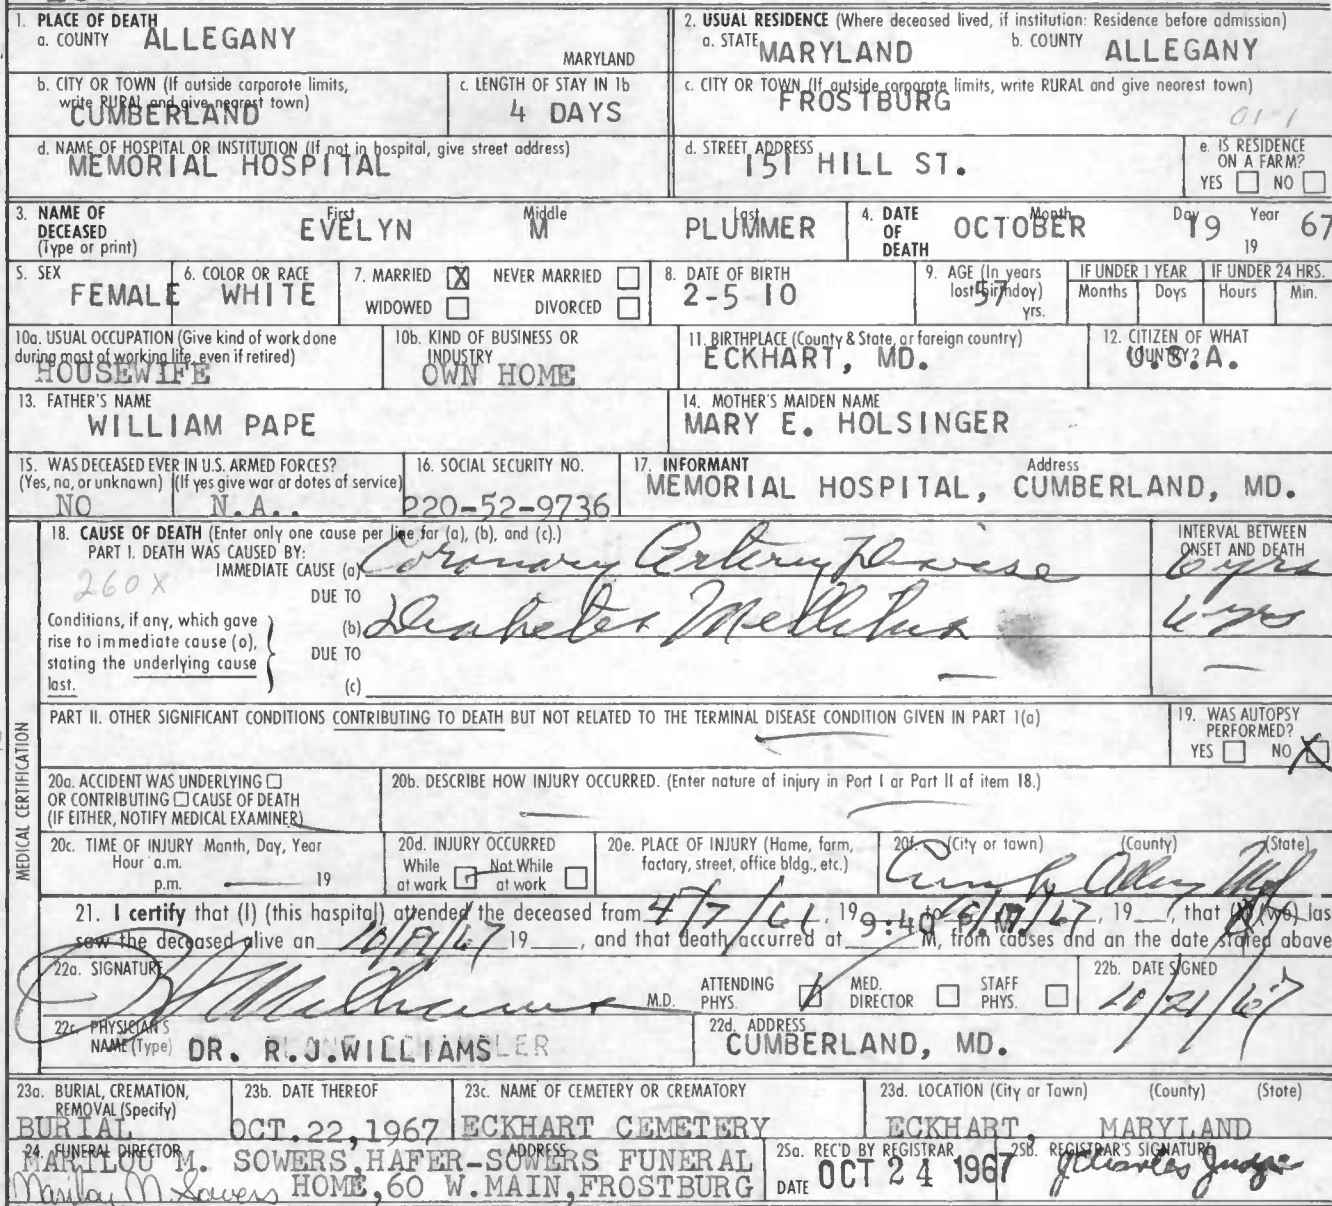 1. PLACE OF DEATH
a. COUNTY ALLEGANY MARYLAND
2. USUAL RESIDENCE (Where deceased lived, if institution: Residence before admission)
a. STATE MARYLAND b. COUNTY ALLEGANY
b. CITY OR TOWN (If outside corporate limits, write RURAL and give nearest town)
CUMBERLAND
c. LENGTH OF STAY IN 1b
4 DAYS
c. CITY OR TOWN (If outside corporate limits, write RURAL and give nearest town)
FROSTBURG
01-1
d. NAME OF HOSPITAL OR INSTITUTION (If not in hospital, give street address)
MEMORIAL HOSPITAL
d. STREET ADDRESS
151 HILL ST.
e. IS RESIDENCE
ON A FARM?
YES NO
3. NAME OF
DECEASED
(Type or print)
First Middle Last
EVELYN M PLUMMER
4. DATE
OF
DEATH
Month Day Year
OCTOBER 19 19 67
5. SEX
FEMALE
6. COLOR OR RACE
WHITE
7. MARRIED X NEVER MARRIED
WIDOWED DIVORCED
8. DATE OF BIRTH
2-5-10
9. AGE (In years
last birthday)
57 yrs.
IF UNDER 1 YEAR
Months Days
IF UNDER 24 HRS.
Hours Min.
10a. USUAL OCCUPATION (Give kind of work done
during most of working life, even if retired)
HOUSEWIFE
10b. KIND OF BUSINESS OR
INDUSTRY
OWN HOME
11. BIRTHPLACE (County & State, or foreign country)
ECKHART, MD.
12. CITIZEN OF WHAT
COUNTRY?
U.S.A.
13. FATHER'S NAME
WILLIAM PAPE
14. MOTHER'S MAIDEN NAME
MARY E. HOLSINGER
15. WAS DECEASED EVER IN U.S. ARMED FORCES?
(Yes, no, or unknown) (If yes give war or dates of service)
NO N.A..
16. SOCIAL SECURITY NO.
220-52-9736
17. INFORMANT Address
MEMORIAL HOSPITAL, CUMBERLAND, MD.
MEDICAL CERTIFICATION
18. CAUSE OF DEATH (Enter only one cause per line for (a), (b), and (c).)
PART I. DEATH WAS CAUSED BY:
IMMEDIATE CAUSE (a) Coronary Artery Disease
INTERVAL BETWEEN
ONSET AND DEATH
6 yrs
260X
DUE TO
Conditions, if any, which gave
rise to immediate cause (a),
stating the underlying cause
last.
(b) Diabetes Mellitus 6 yrs
DUE TO
(c)
PART II. OTHER SIGNIFICANT CONDITIONS CONTRIBUTING TO DEATH BUT NOT RELATED TO THE TERMINAL DISEASE CONDITION GIVEN IN PART I(a)
19. WAS AUTOPSY
PERFORMED?
YES NO X
20a. ACCIDENT WAS UNDERLYING
OR CONTRIBUTING CAUSE OF DEATH
(IF EITHER, NOTIFY MEDICAL EXAMINER)
20b. DESCRIBE HOW INJURY OCCURRED. (Enter nature of injury in Part I or Part II of item 18.)
20c. TIME OF INJURY Month, Day, Year
Hour a.m.
p.m. 19
20d. INJURY OCCURRED
While Not While
at work at work
20e. PLACE OF INJURY (Home, farm,
factory, street, office bldg., etc.)
20f. (City or town) (County) (State)
Md
21. I certify that (I) (this hospital) attended the deceased from 4/7/61, 19 to 10/19/67, 19, that (I) (we) last
saw the deceased alive on 10/19/67 19, and that death occurred at 9:40 P.M, from causes and on the date stated above
22a. SIGNATURE
R J Williams M.D.
ATTENDING
PHYS.
MED.
DIRECTOR
STAFF
PHYS.
22b. DATE SIGNED
10/21/67
22c. PHYSICIAN'S
NAME (Type) DR. R.J.WILLIAMS
22d. ADDRESS
CUMBERLAND, MD.
23a. BURIAL, CREMATION,
REMOVAL (Specify)
BURIAL
23b. DATE THEREOF
OCT.22,1967
23c. NAME OF CEMETERY OR CREMATORY
ECKHART CEMETERY
23d. LOCATION (City or Town) (County) (State)
ECKHART, MARYLAND
24. FUNERAL DIRECTOR ADDRESS
MARILOU M. SOWERS,HAFER-SOWERS FUNERAL
Marilou M Sowers HOME,60 W.MAIN,FROSTBURG
25a. REC'D BY REGISTRAR
DATE OCT 24 1967
25b. REGISTRAR'S SIGNATURE
J Charles Judge